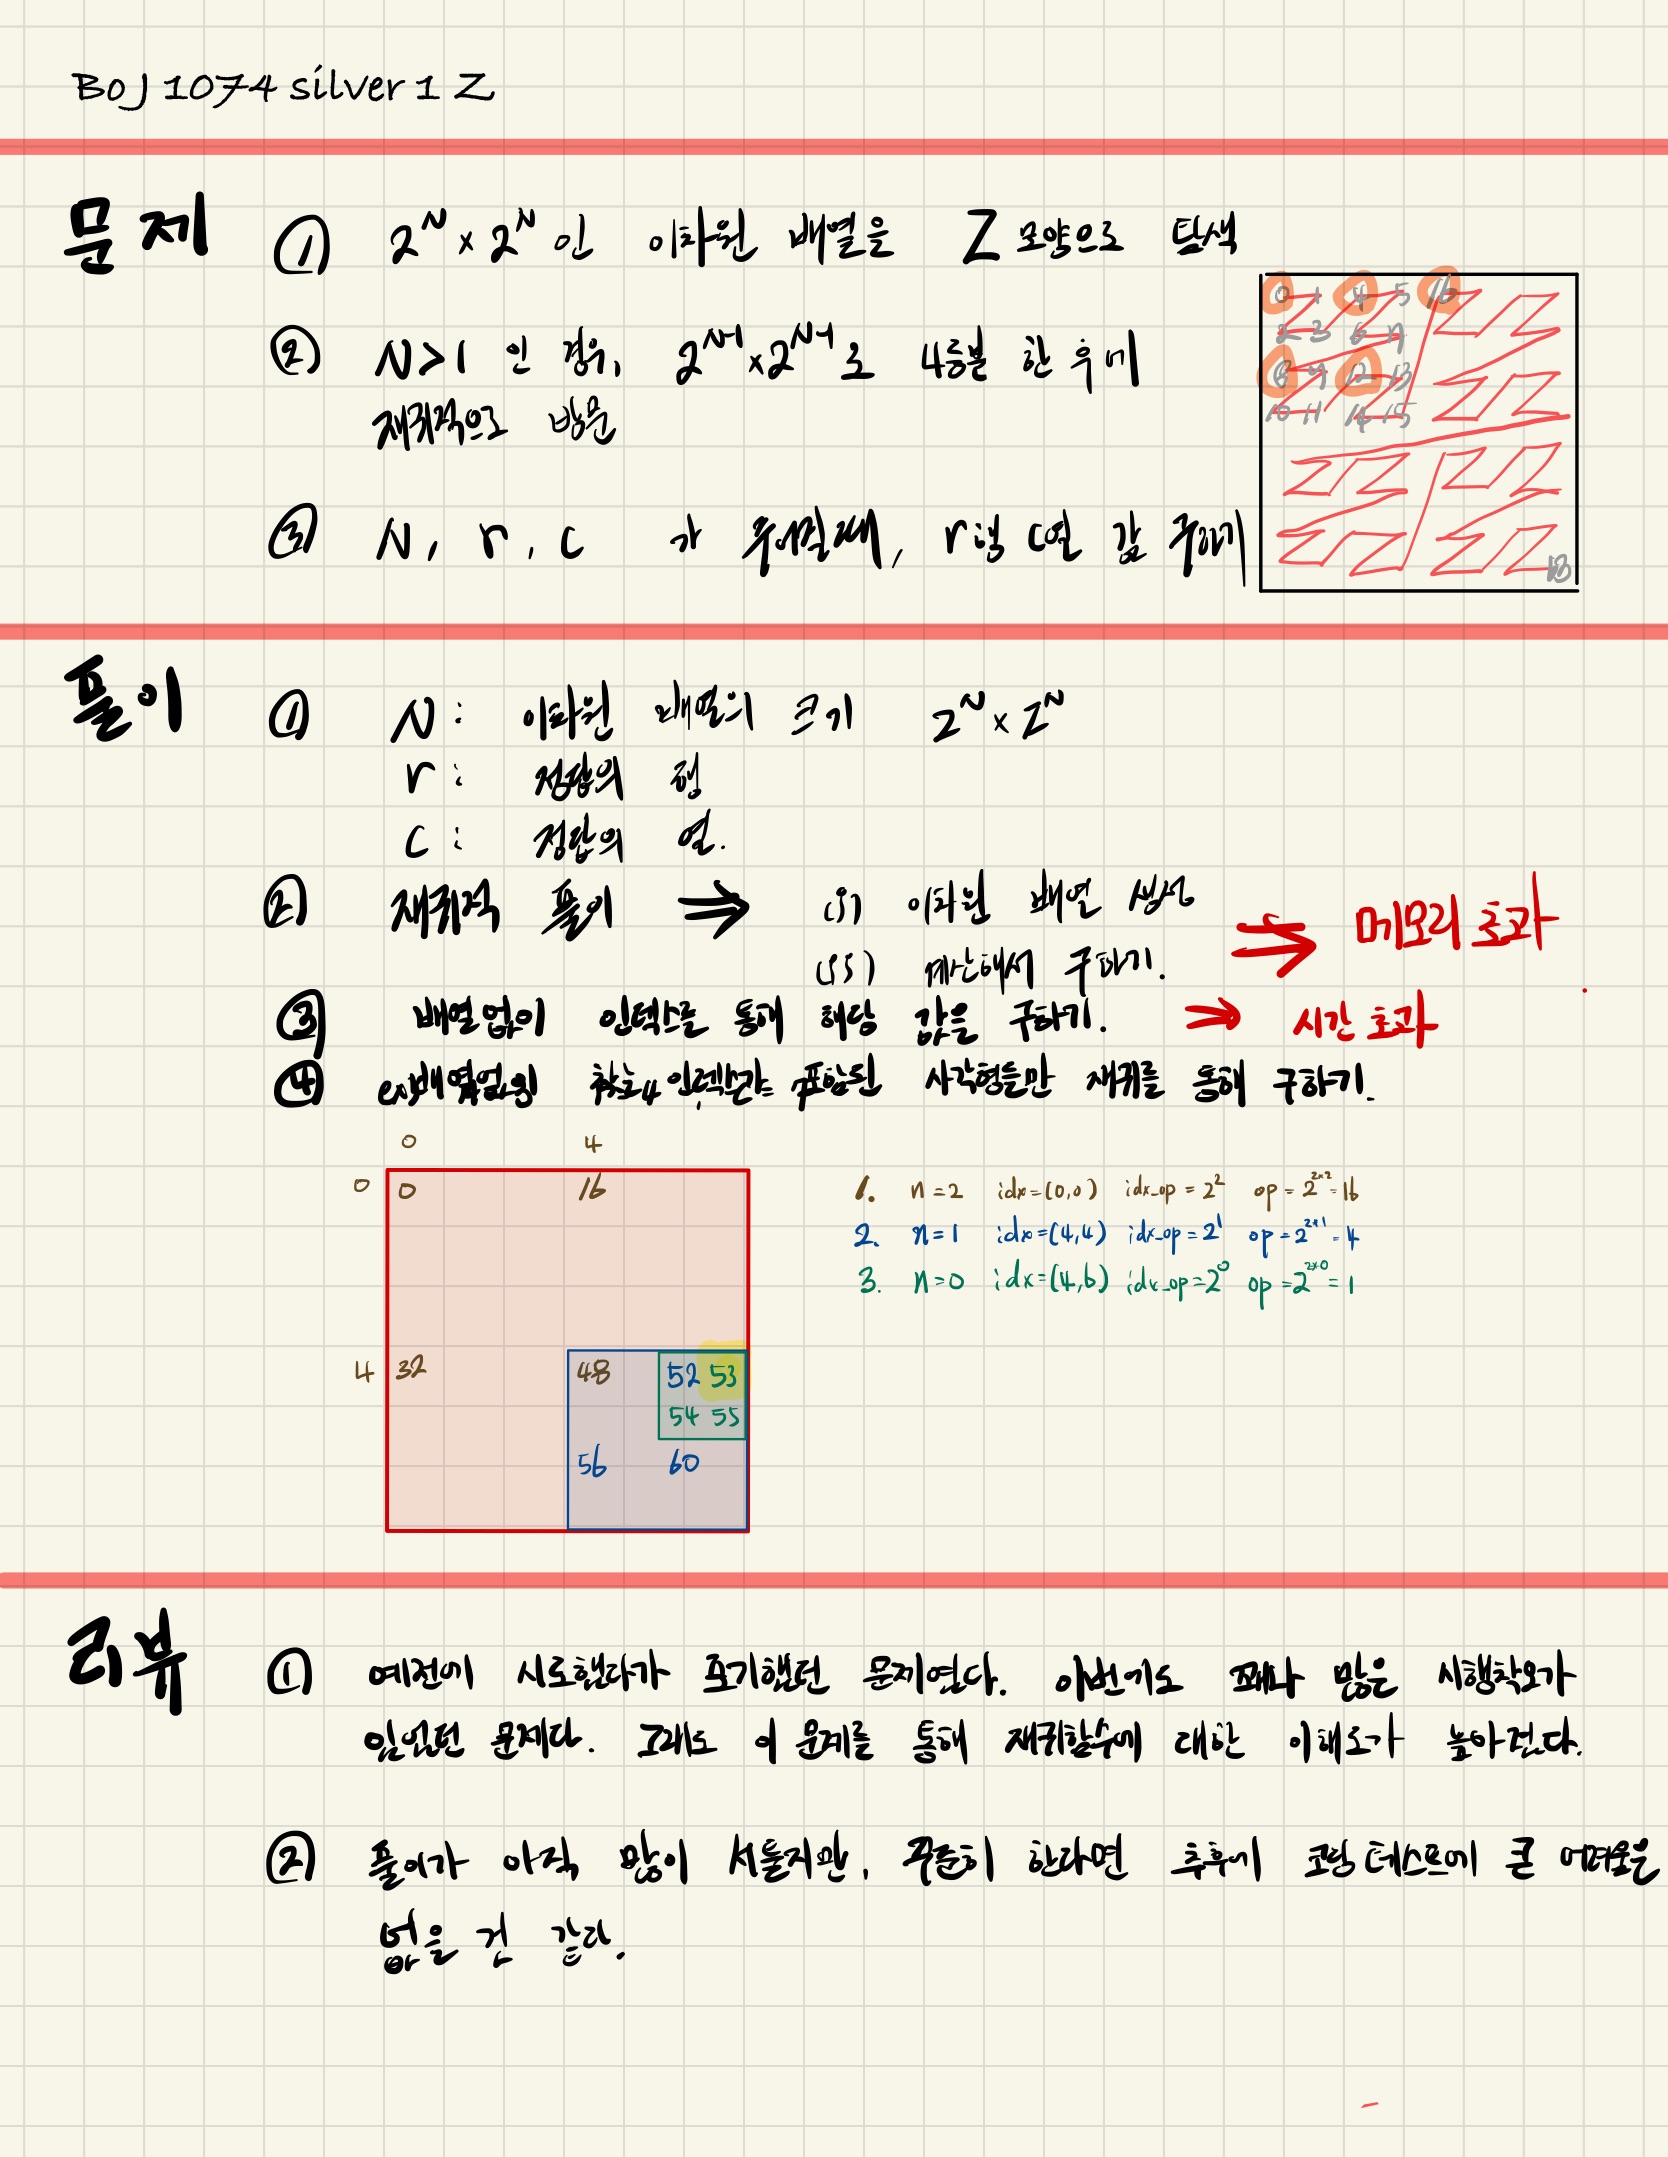 BOJ 1074 silver 1 Z
문제
① 2^N × 2^N 인 이차원 배열을 Z 모양으로 탐색
② N>1 인 경우, 2^N-1 × 2^N-1 로 4등분 한 후에
재귀적으로 방문
③ N, r, c 가 주어질때, r행 c열 값 구하기
0 1 4 5 16
2 3 6 7
8 9 12 13
10 11 14 15
풀이
① N : 이차원 배열의 크기 2^N × 2^N
r : 정답의 행
c : 정답의 열.
② 재귀적 풀이 ⇒ (i) 이차원 배열 생성
(ii) 계산해서 구하기. ⇒ 메모리 초과
③ 배열없이 인덱스를 통해 해당 값을 구하기. → 시간 초과
④ 찾는 인덱스가 포함된 사각형들만 재귀를 통해 구하기.
0 4
0 0 16
4 32 48 52 53
54 55
56 60
1. n=2 idx=(0,0) idx_op=2^2 op=2^2×2=16
2. n=1 idx=(4,4) idx_op=2^1 op=2^2×1=4
3. n=0 idx=(4,6) idx_op=2^0 op=2^2×0=1
리뷰
① 예전에 시도했다가 포기했던 문제였다. 이번에도 꽤나 많은 시행착오가
있었던 문제다. 그래도 이 문제를 통해 재귀함수에 대한 이해도가 높아졌다.
② 풀이가 아직 많이 서툴지만, 꾸준히 한다면 추후에 코딩테스트에 큰 어려움은
없을 건 같다.